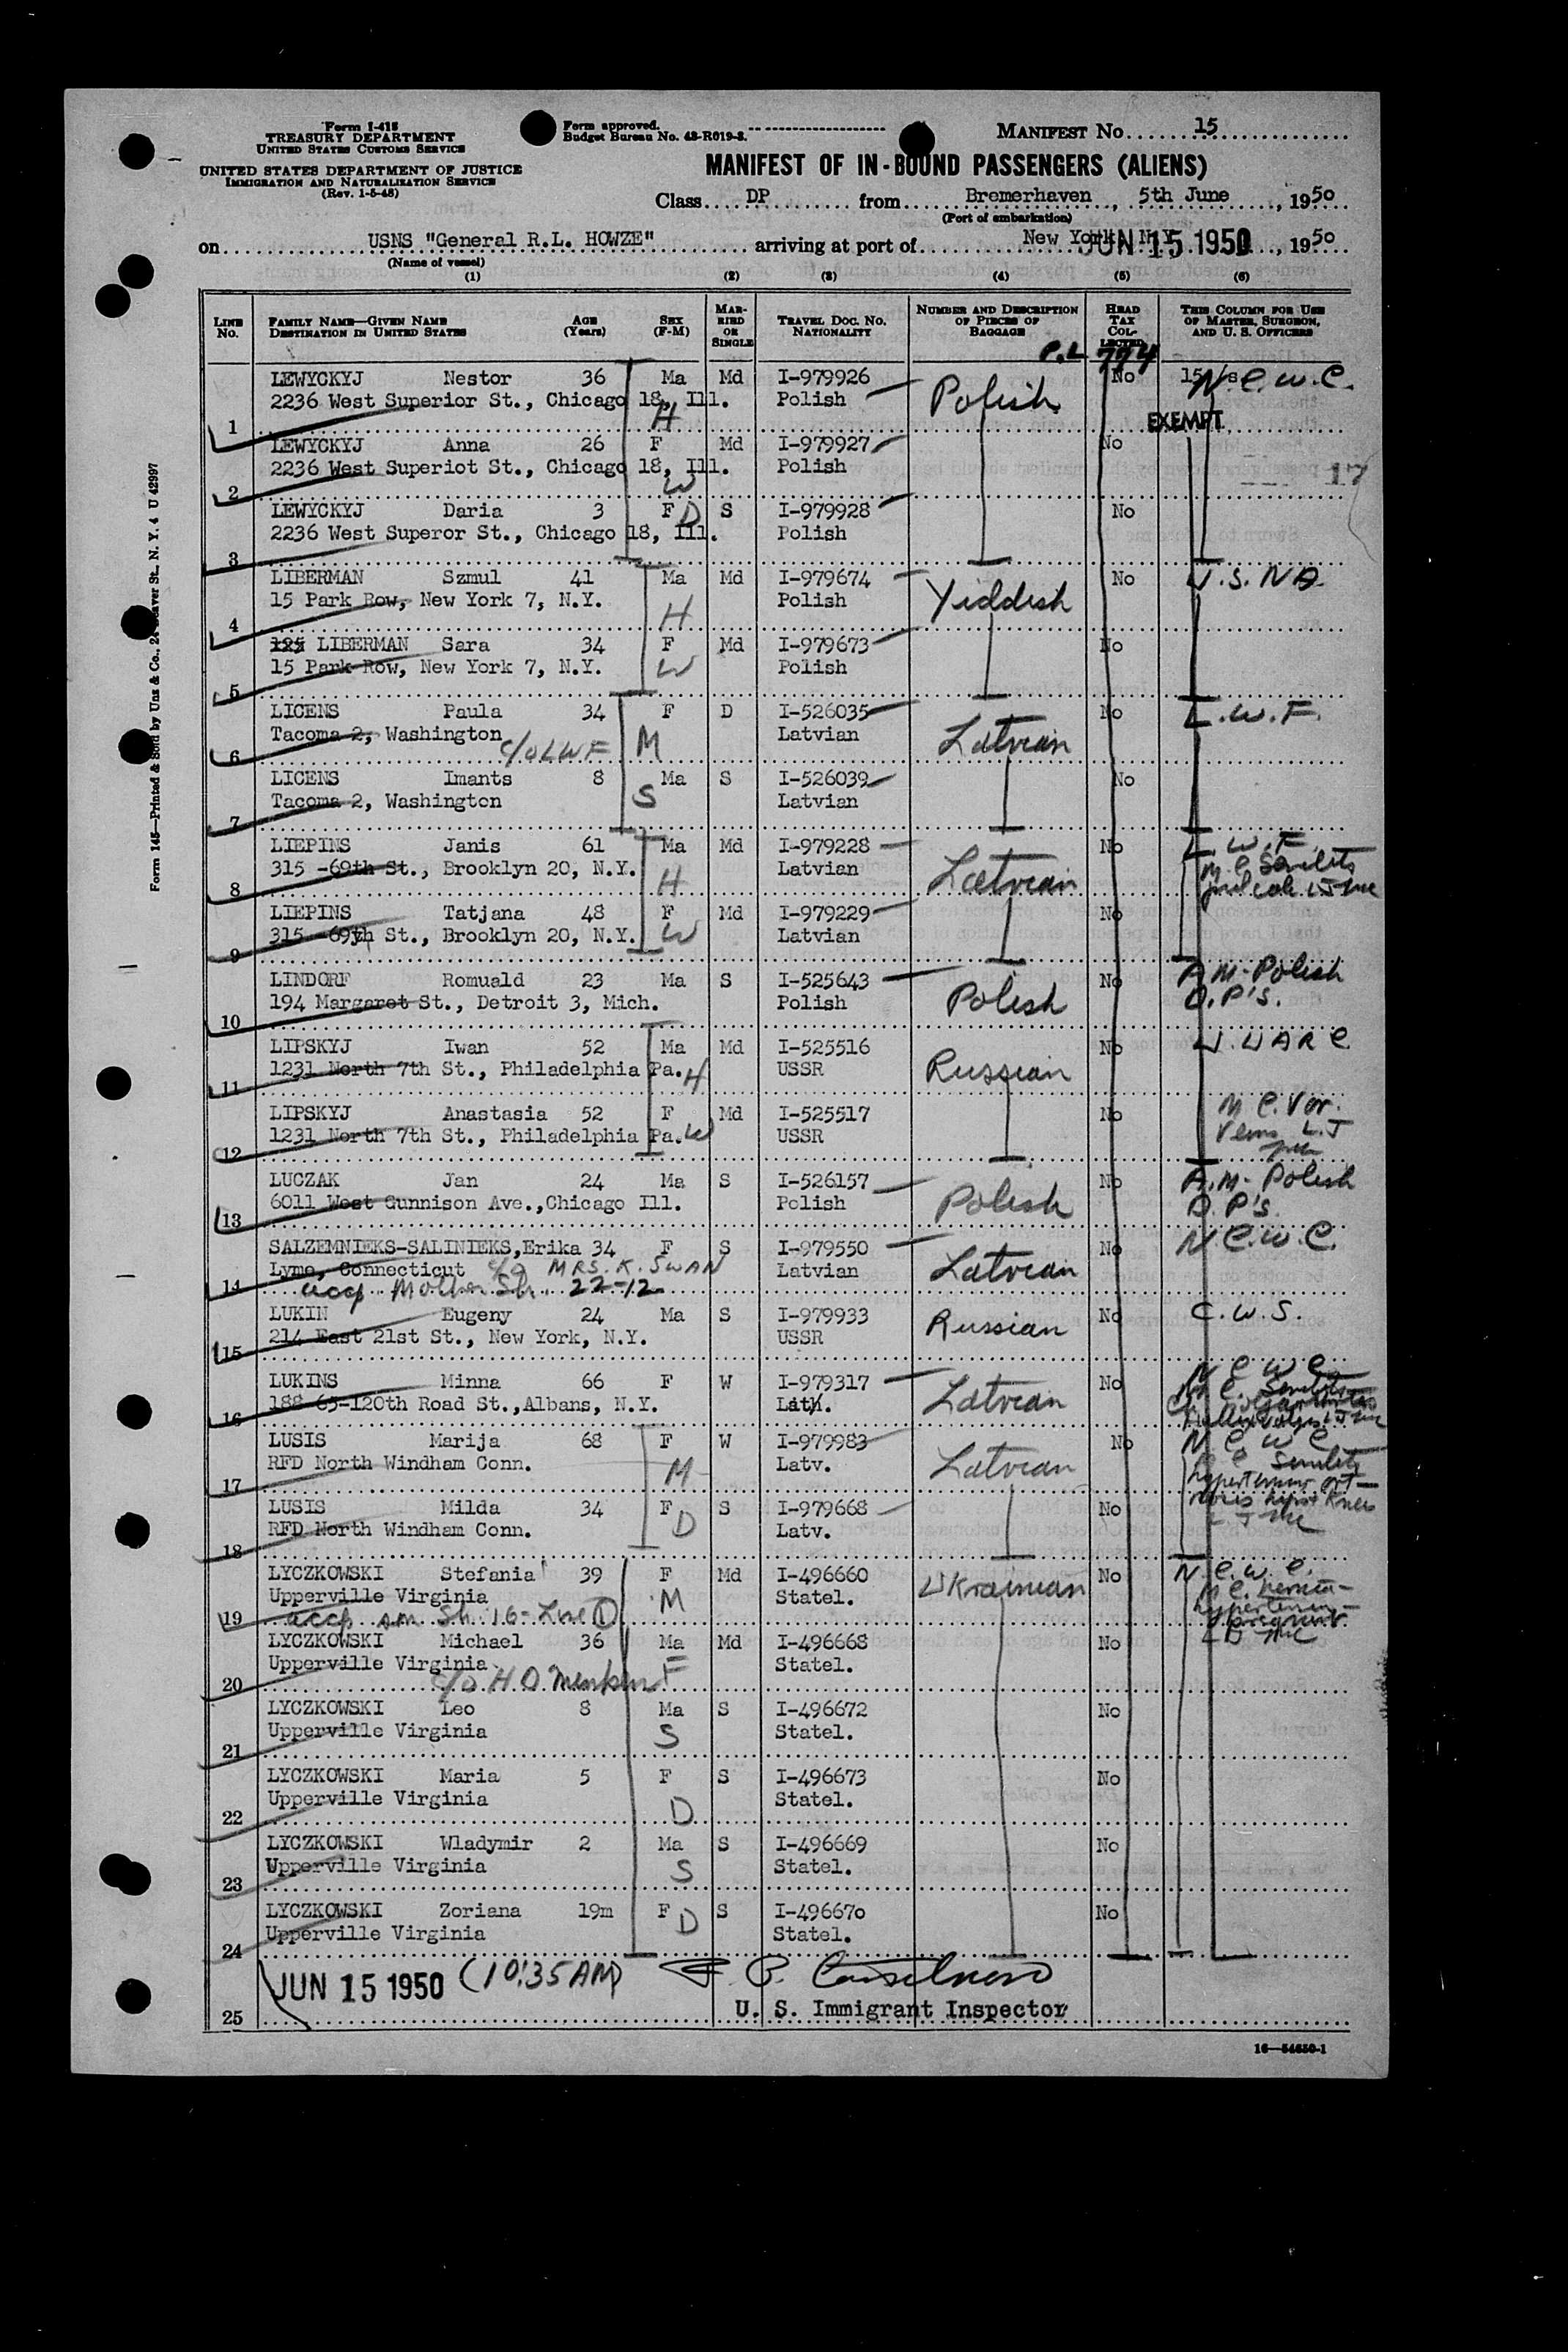 Form I-415
TREASURY DEPARTMENT
UNITED STATES CUSTOMS SERVICE
UNITED STATES DEPARTMENT OF JUSTICE
IMMIGRATION AND NATURALIZATION SERVICE
(Rev. 1-5-48)
Form approved.
Budget Bureau No. 43-R019-3.
MANIFEST NO. 15
MANIFEST OF IN-BOUND PASSENGERS (ALIENS)
Class DP from Bremerhaven, 5th June, 1950
(Port of embarkation)
on USNS "General R.L. HOWZE" arriving at port of New York N.Y. JUN 15 1950, 1950
(Name of vessel)
(1) (2) (3) (4) (5) (6)
LINE No. FAMILY NAME—GIVEN NAME DESTINATION IN UNITED STATES AGE (Years) SEX (F-M) MARRIED OR SINGLE TRAVEL DOC. NO. NATIONALITY NUMBER AND DESCRIPTION OF PIECES OF BAGGAGE HEAD TAX COLLECTED THIS COLUMN FOR USE OF MASTER, SURGEON, AND U. S. OFFICERS
P.L. 774
LEWYCKYJ Nestor 36 Ma Md I-979926 Polish No N.C.W.C.
2236 West Superior St., Chicago 18, Ill. Polish
1 H EXEMPT
LEWYCKYJ Anna 26 F Md I-979927 No
2236 West Superiot St., Chicago 18, Ill. Polish 17
2 W
LEWYCKYJ Daria 3 F D S I-979928 No
2236 West Superor St., Chicago 18, Ill. Polish
3
LIBERMAN Szmul 41 Ma Md I-979674 Yiddish No U.S.NA
15 Park Row, New York 7, N.Y. Polish
4 H
125 LIBERMAN Sara 34 F Md I-979673 No
15 Park Row, New York 7, N.Y. W Polish
5
LICENS Paula 34 F D I-526035 Latvian No L.W.F.
Tacoma 2, Washington Latvian
6 c/o LWF M
LICENS Imants 8 Ma S I-526039 No
Tacoma 2, Washington S Latvian
7
LIEPINS Janis 61 Ma Md I-979228 Latvian No L.W.F.
315 -69th St., Brooklyn 20, N.Y. Latvian M C Senility
8 H
LIEPINS Tatjana 48 F Md I-979229 No
315 -69th St., Brooklyn 20, N.Y. W Latvian
9
LINDORF Romuald 23 Ma S I-525643 Polish No AM-Polish
194 Margaret St., Detroit 3, Mich. Polish D.P's.
10
LIPSKYJ Iwan 52 Ma Md I-525516 Russian No U.UARC
1231 North 7th St., Philadelphia Pa. H USSR
11
LIPSKYJ Anastasia 52 F Md I-525517 No M C. Var.
1231 North 7th St., Philadelphia Pa. W USSR Veins L.J
12
LUCZAK Jan 24 Ma S I-526157 Polish No A.M-Polish
6011 West Gunnison Ave.,Chicago Ill. Polish D.P's.
13
SALZEMNIEKS-SALINIEKS,Erika 34 F S I-979550 Latvian No N.C.W.C.
Lyme, Connecticut c/o MRS. K. SWAN Latvian
14 accp Mother Sh. 22-12
LUKIN Eugeny 24 Ma S I-979933 Russian No C.W.S.
214 East 21st St., New York, N.Y. USSR
15
LUKINS Minna 66 F W I-979317 Latvian No N C W C
188 65-120th Road St.,Albans, N.Y. M C. Senility
16
LUSIS Marija 68 F W I-979983 Latvian No N C W C
RFD North Windham Conn. Latv. M C Senility
17 M hypertension
LUSIS Milda 34 F S I-979668 No
RFD North Windham Conn. D Latv.
18
LYCZKOWSKI Stefania 39 F Md I-496660 Ukrainian No N.C.W.C.
Upperville Virginia M Statel. M C. hernia-
19 accp am Sh. 16- Line 1 hypertension-
LYCZKOWSKI Michael 36 Ma Md I-496668 No
Upperville Virginia F Statel.
20 c/o H.D.
LYCZKOWSKI Leo 8 Ma S I-496672 No
Upperville Virginia S Statel.
21
LYCZKOWSKI Maria 5 F S I-496673 No
Upperville Virginia D Statel.
22
LYCZKOWSKI Wladymir 2 Ma S I-496669 No
Upperville Virginia S Statel.
23
LYCZKOWSKI Zoriana 19m F D S I-496670 No
Upperville Virginia Statel.
24
JUN 15 1950 (10:35 AM)
25 U. S. Immigrant Inspector
16—54650-1
Form 145—Printed & Sold by Unz & Co., 24 Beaver St., N. Y. 4 U 42997